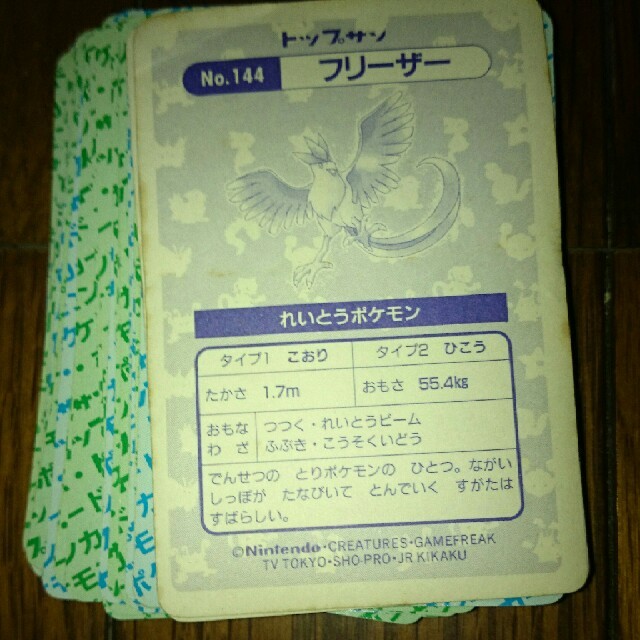 トップサン
No.144 フリーザー
れいとうポケモン
タイプ1 こおり タイプ2 ひこう
たかさ 1.7m おもさ 55.4kg
おもな つつく・れいとうビーム
わざ ふぶき・こうそくいどう
でんせつの とりポケモンの ひとつ。ながい
しっぽが たなびいて とんでいく すがたは
すばらしい。
©Nintendo・CREATURES・GAMEFREAK
TV TOKYO・SHO-PRO・JR KIKAKU